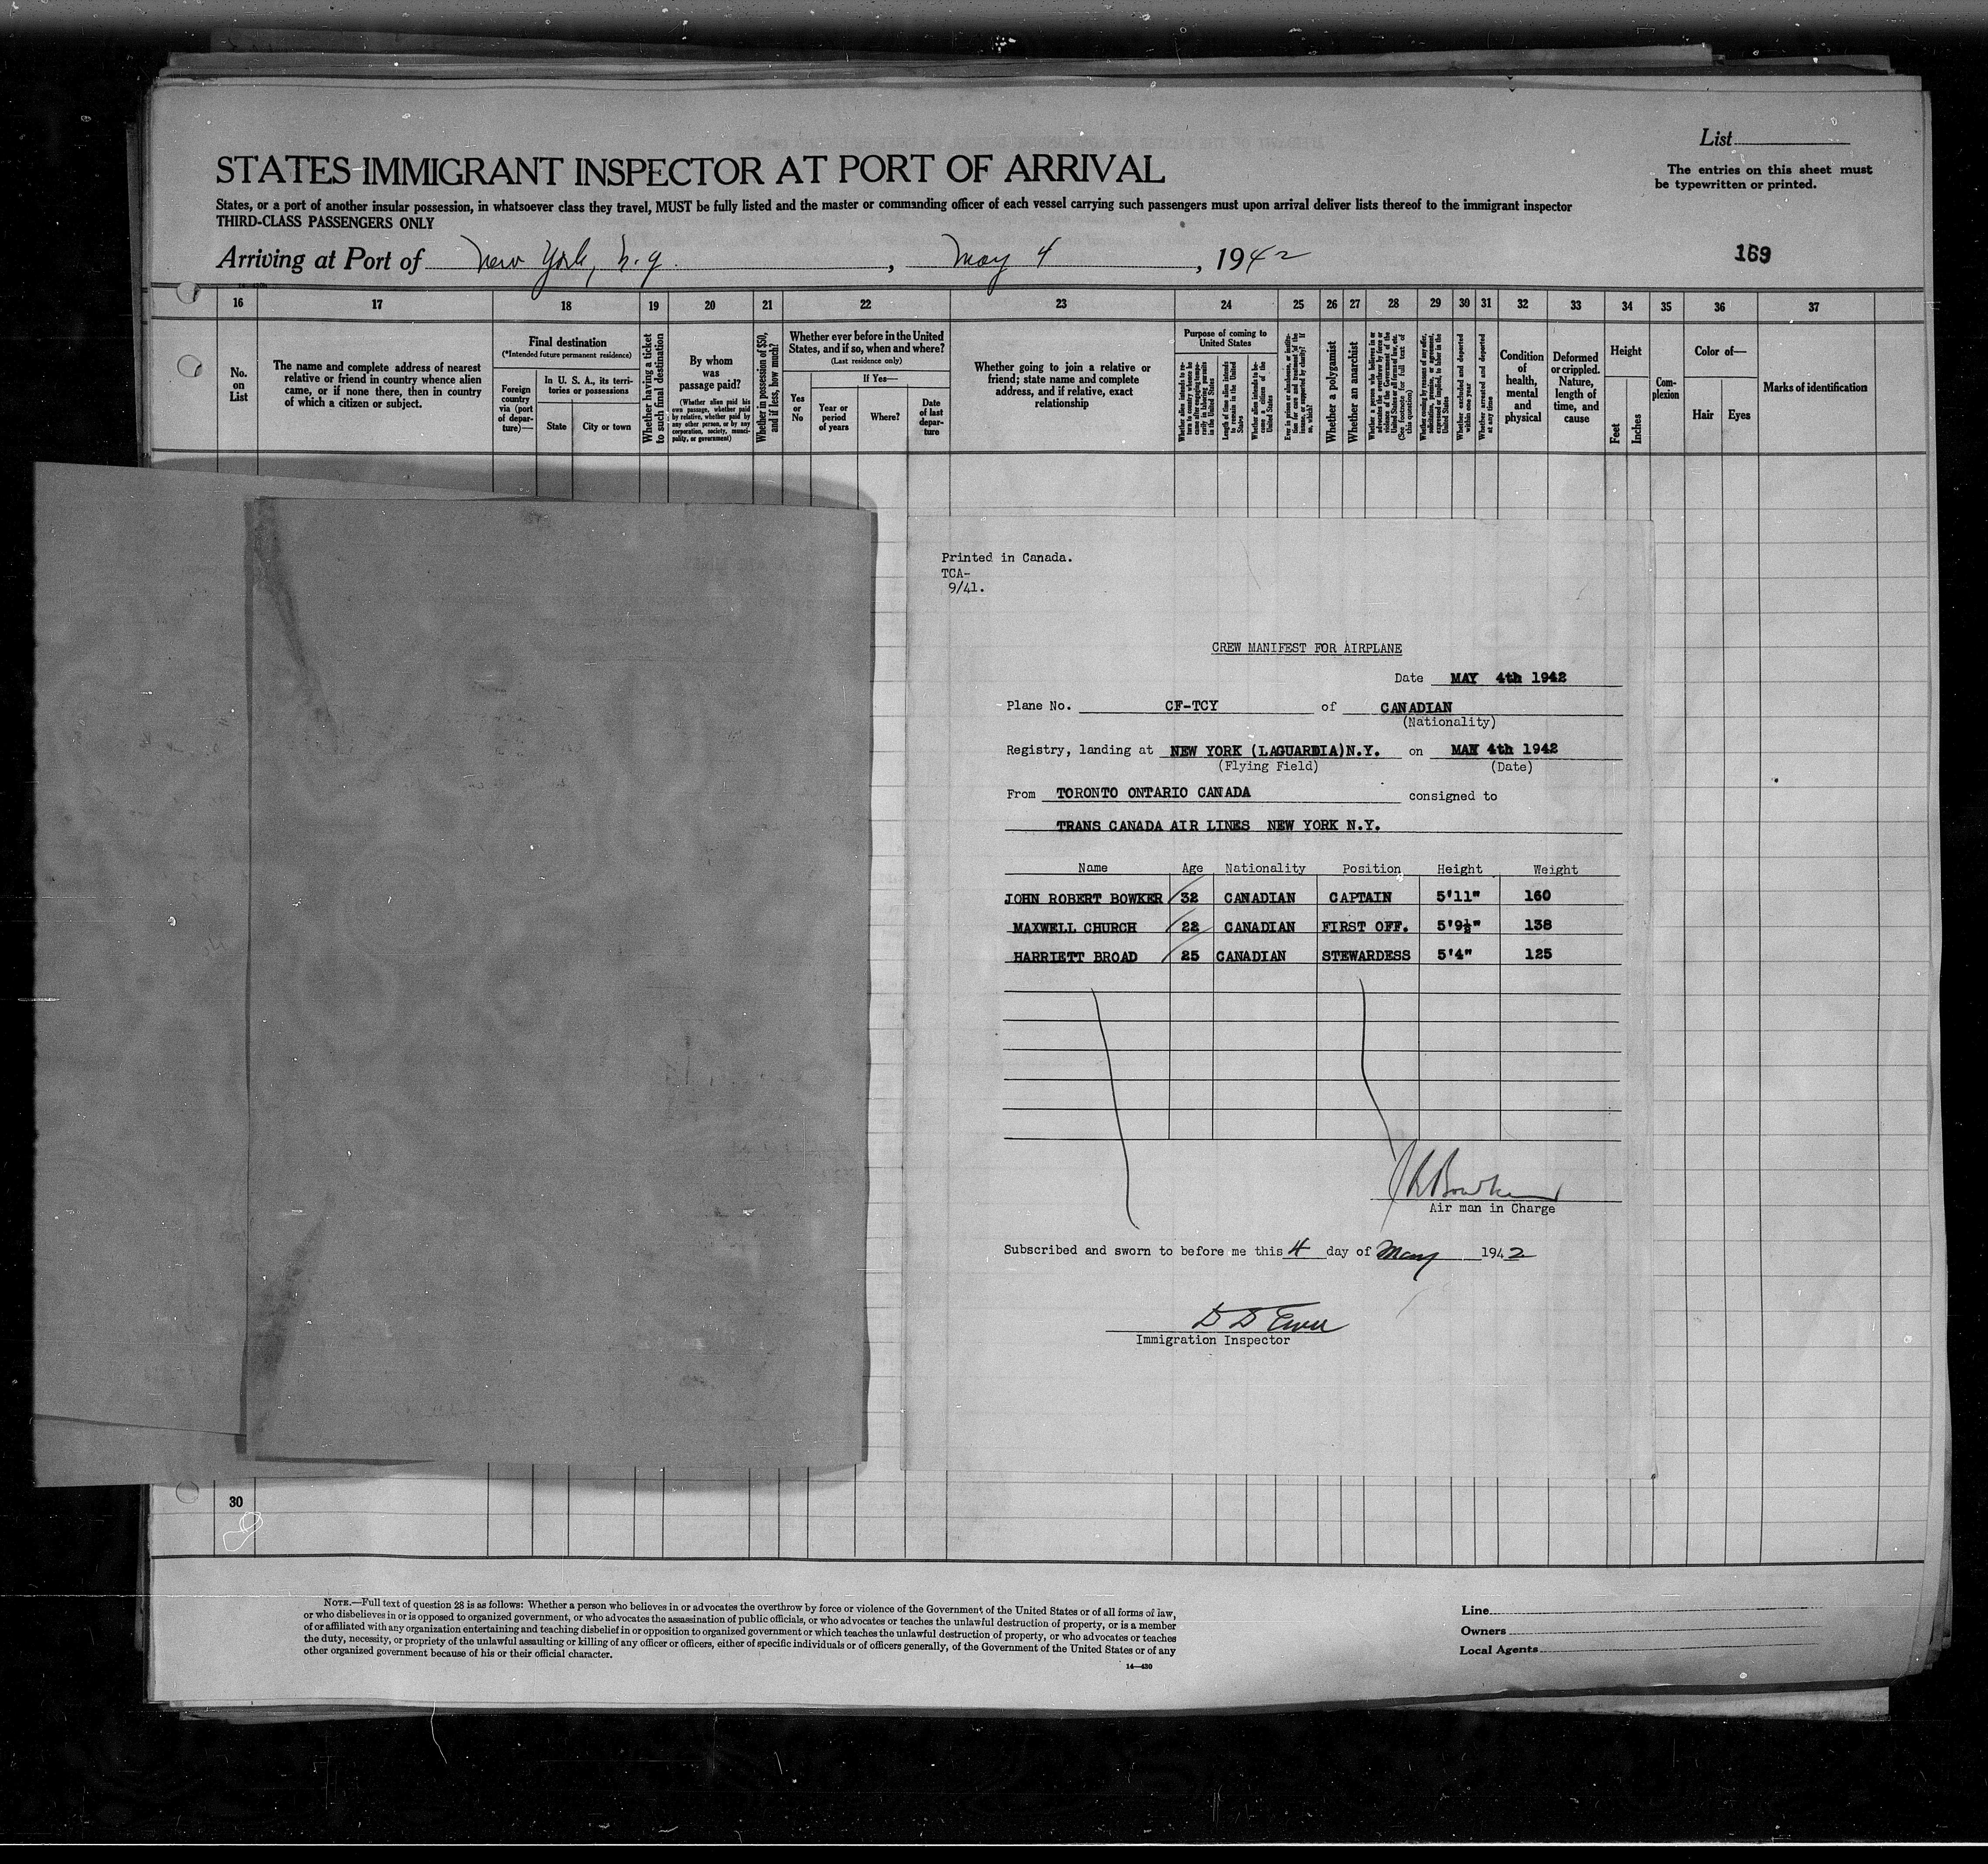 List
The entries on this sheet must
be typewritten or printed.
STATES IMMIGRANT INSPECTOR AT PORT OF ARRIVAL
States, or a port of another insular possession, in whatsoever class they travel, MUST be fully listed and the master or commanding officer of each vessel carrying such passengers must upon arrival deliver lists thereof to the immigrant inspector
THIRD-CLASS PASSENGERS ONLY
Arriving at Port of New York, N.Y., May 4, 1942
169
16 17 18 19 20 21 22 23 24 25 26 27 28 29 30 31 32 33 34 35 36 37
No.
on
List
The name and complete address of nearest
relative or friend in country whence alien
came, or if none there, then in country
of which a citizen or subject.
Final destination
(*Intended future permanent residence)
Foreign
country
via (port
of depar-
ture)—
In U. S. A., its terri-
tories or possessions
State
City or town
Whether having a ticket
to such final destination
By whom
was
passage paid?
(Whether alien paid his
own passage, whether paid
by relative, whether paid by
any other person, or by any
corporation, society, munici-
pality, or government)
Whether in possession of $50,
and if less, how much?
Whether ever before in the United
States, and if so, when and where?
(Last residence only)
Yes
or
No
If Yes—
Year or
period
of years
Where?
Date
of last
depar-
ture
Whether going to join a relative or
friend; state name and complete
address, and if relative, exact
relationship
Purpose of coming to
United States
Length of time alien intends
to remain in the United
States
Whether alien intends to be-
come a citizen of the
United States
Whether a polygamist
Whether an anarchist
Whether arrested and deported
at any time
Condition
of
health,
mental
and
physical
Deformed
or crippled.
Nature,
length of
time, and
cause
Height
Feet
Inches
Com-
plexion
Color of—
Hair
Eyes
Marks of identification
Printed in Canada.
TCA-
9/41.
CREW MANIFEST FOR AIRPLANE
Date MAY 4th 1942
Plane No. CF-TCY of CANADIAN
(Nationality)
Registry, landing at NEW YORK (LAGUARDIA)N.Y. on MAY 4th 1942
(Flying Field) (Date)
From TORONTO ONTARIO CANADA consigned to
TRANS CANADA AIR LINES NEW YORK N.Y.
Name Age Nationality Position Height Weight
JOHN ROBERT BOWKER 32 CANADIAN CAPTAIN 5'11" 160
MAXWELL CHURCH 22 CANADIAN FIRST OFF. 5'9½" 138
HARRIETT BROAD 25 CANADIAN STEWARDESS 5'4" 125
J R Bowker
Air man in Charge
Subscribed and sworn to before me this 4 day of May 1942
Immigration Inspector
30
NOTE.—Full text of question 28 is as follows: Whether a person who believes in or advocates the overthrow by force or violence of the Government of the United States or of all forms of law,
or who disbelieves in or is opposed to organized government, or who advocates the assassination of public officials, or who advocates or teaches the unlawful destruction of property, or is a member
of or affiliated with any organization entertaining and teaching disbelief in or opposition to organized government or which teaches the unlawful destruction of property, or who advocates or teaches
the duty, necessity, or propriety of the unlawful assaulting or killing of any officer or officers, either of specific individuals or of officers generally, of the Government of the United States or of any
other organized government because of his or their official character.
14—430
Line
Owners
Local Agents